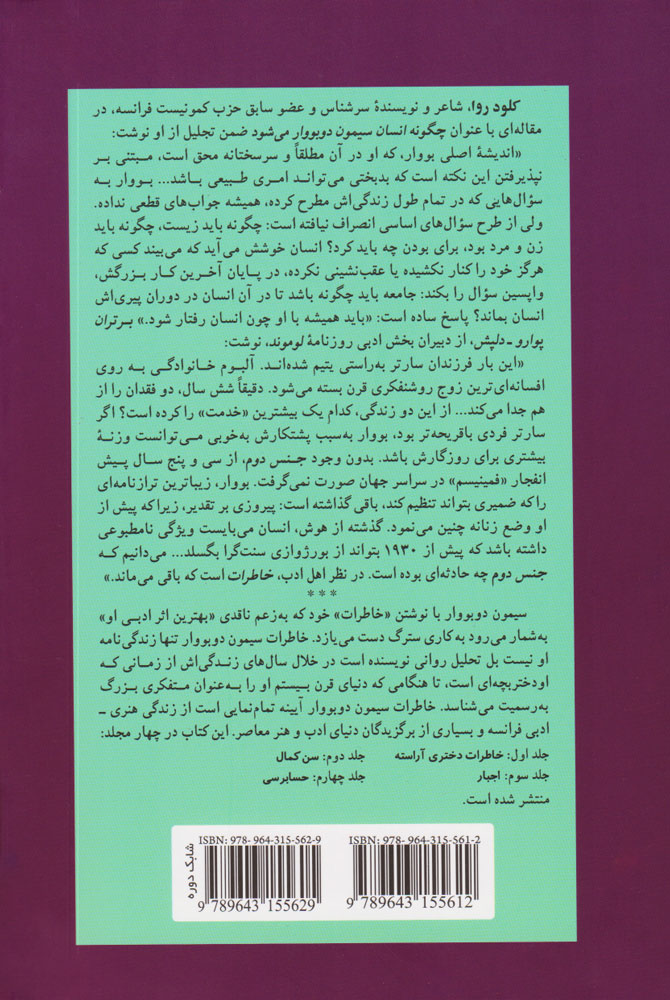 کلود روا، شاعر و نویسندهٔ سرشناس و عضو سابق حزب کمونیست فرانسه، در
مقاله‌ای با عنوان چگونه انسان سیمون دوبووار می‌شود ضمن تجلیل از او نوشت:
«اندیشهٔ اصلی بووار، که او در آن مطلقاً و سرسختانه محق است، مبتنی بر
نپذیرفتن این نکته است که بدبختی می‌تواند امری طبیعی باشد... بووار به
سؤال‌هایی که در تمام طول زندگی‌اش مطرح کرده، همیشه جواب‌های قطعی نداده.
ولی از طرح سؤال‌های اساسی انصراف نیافته است: چگونه باید زیست، چگونه باید
زن و مرد بود، برای بودن چه باید کرد؟ انسان خوشش می‌آید که می‌بیند کسی که
هرگز خود را کنار نکشیده یا عقب‌نشینی نکرده، در پایان آخرین کار بزرگش،
واپسین سؤال را بکند: جامعه باید چگونه باشد تا در آن انسان در دوران پیری‌اش
انسان بماند؟ پاسخ ساده است: «باید همیشه با او چون انسان رفتار شود.» برتران
پوارو ـ دلپش، از دبیران بخش ادبی روزنامهٔ لوموند، نوشت:
«این بار فرزندان سارتر به‌راستی یتیم شده‌اند. آلبوم خانوادگی به روی
افسانه‌ای‌ترین زوج روشنفکری قرن بسته می‌شود. دقیقاً شش سال، دو فقدان را از
هم جدا می‌کند... از این دو زندگی، کدام یک بیشترین «خدمت» را کرده است؟ اگر
سارتر فردی باقریحه‌تر بود، بووار به‌سبب پشتکارش به‌خوبی می‌توانست وزنهٔ
بیشتری برای روزگارش باشد. بدون وجود جنس دوم، از سی و پنج سال پیش
انفجار «فمینیسم» در سراسر جهان صورت نمی‌گرفت. بووار، زیباترین ترازنامه‌ای
را که ضمیری بتواند تنظیم کند، باقی گذاشته است: پیروزی بر تقدیر، زیرا که پیش از
او وضع زنانه چنین می‌نمود. گذشته از هوش، انسان می‌بایست ویژگی نامطبوعی
داشته باشد که پیش از ۱۹۳۰ بتواند از بورژوازی سنت‌گرا بگسلد... می‌دانیم که
جنس دوم چه حادثه‌ای بوده است. در نظر اهل ادب، خاطرات است که باقی می‌ماند.»
***
سیمون دوبووار با نوشتن «خاطرات» خود که به‌زعم ناقدی «بهترین اثر ادبی او»
به‌شمار می‌رود به‌کاری سترگ دست می‌یازد. خاطرات سیمون دوبووار تنها زندگی‌نامه
او نیست بل تحلیل روانی نویسنده است در خلال سال‌های زندگی‌اش از زمانی که
او دختربچه‌ای است، تا هنگامی که دنیای قرن بیستم او را به‌عنوان متفکری بزرگ
به‌رسمیت می‌شناسد. خاطرات سیمون دوبووار آیینه تمام‌نمایی است از زندگی هنری ـ
ادبی فرانسه و بسیاری از برگزیدگان دنیای ادب و هنر معاصر. این کتاب در چهار مجلد:
جلد اول: خاطرات دختری آراسته جلد دوم: سن کمال
جلد سوم: اجبار جلد چهارم: حسابرسی
منتشر شده است.
شابک دوره
ISBN: 978- 964-315-562-9
9 789643 155629
ISBN: 978- 964-315-561-2
9 789643 155612